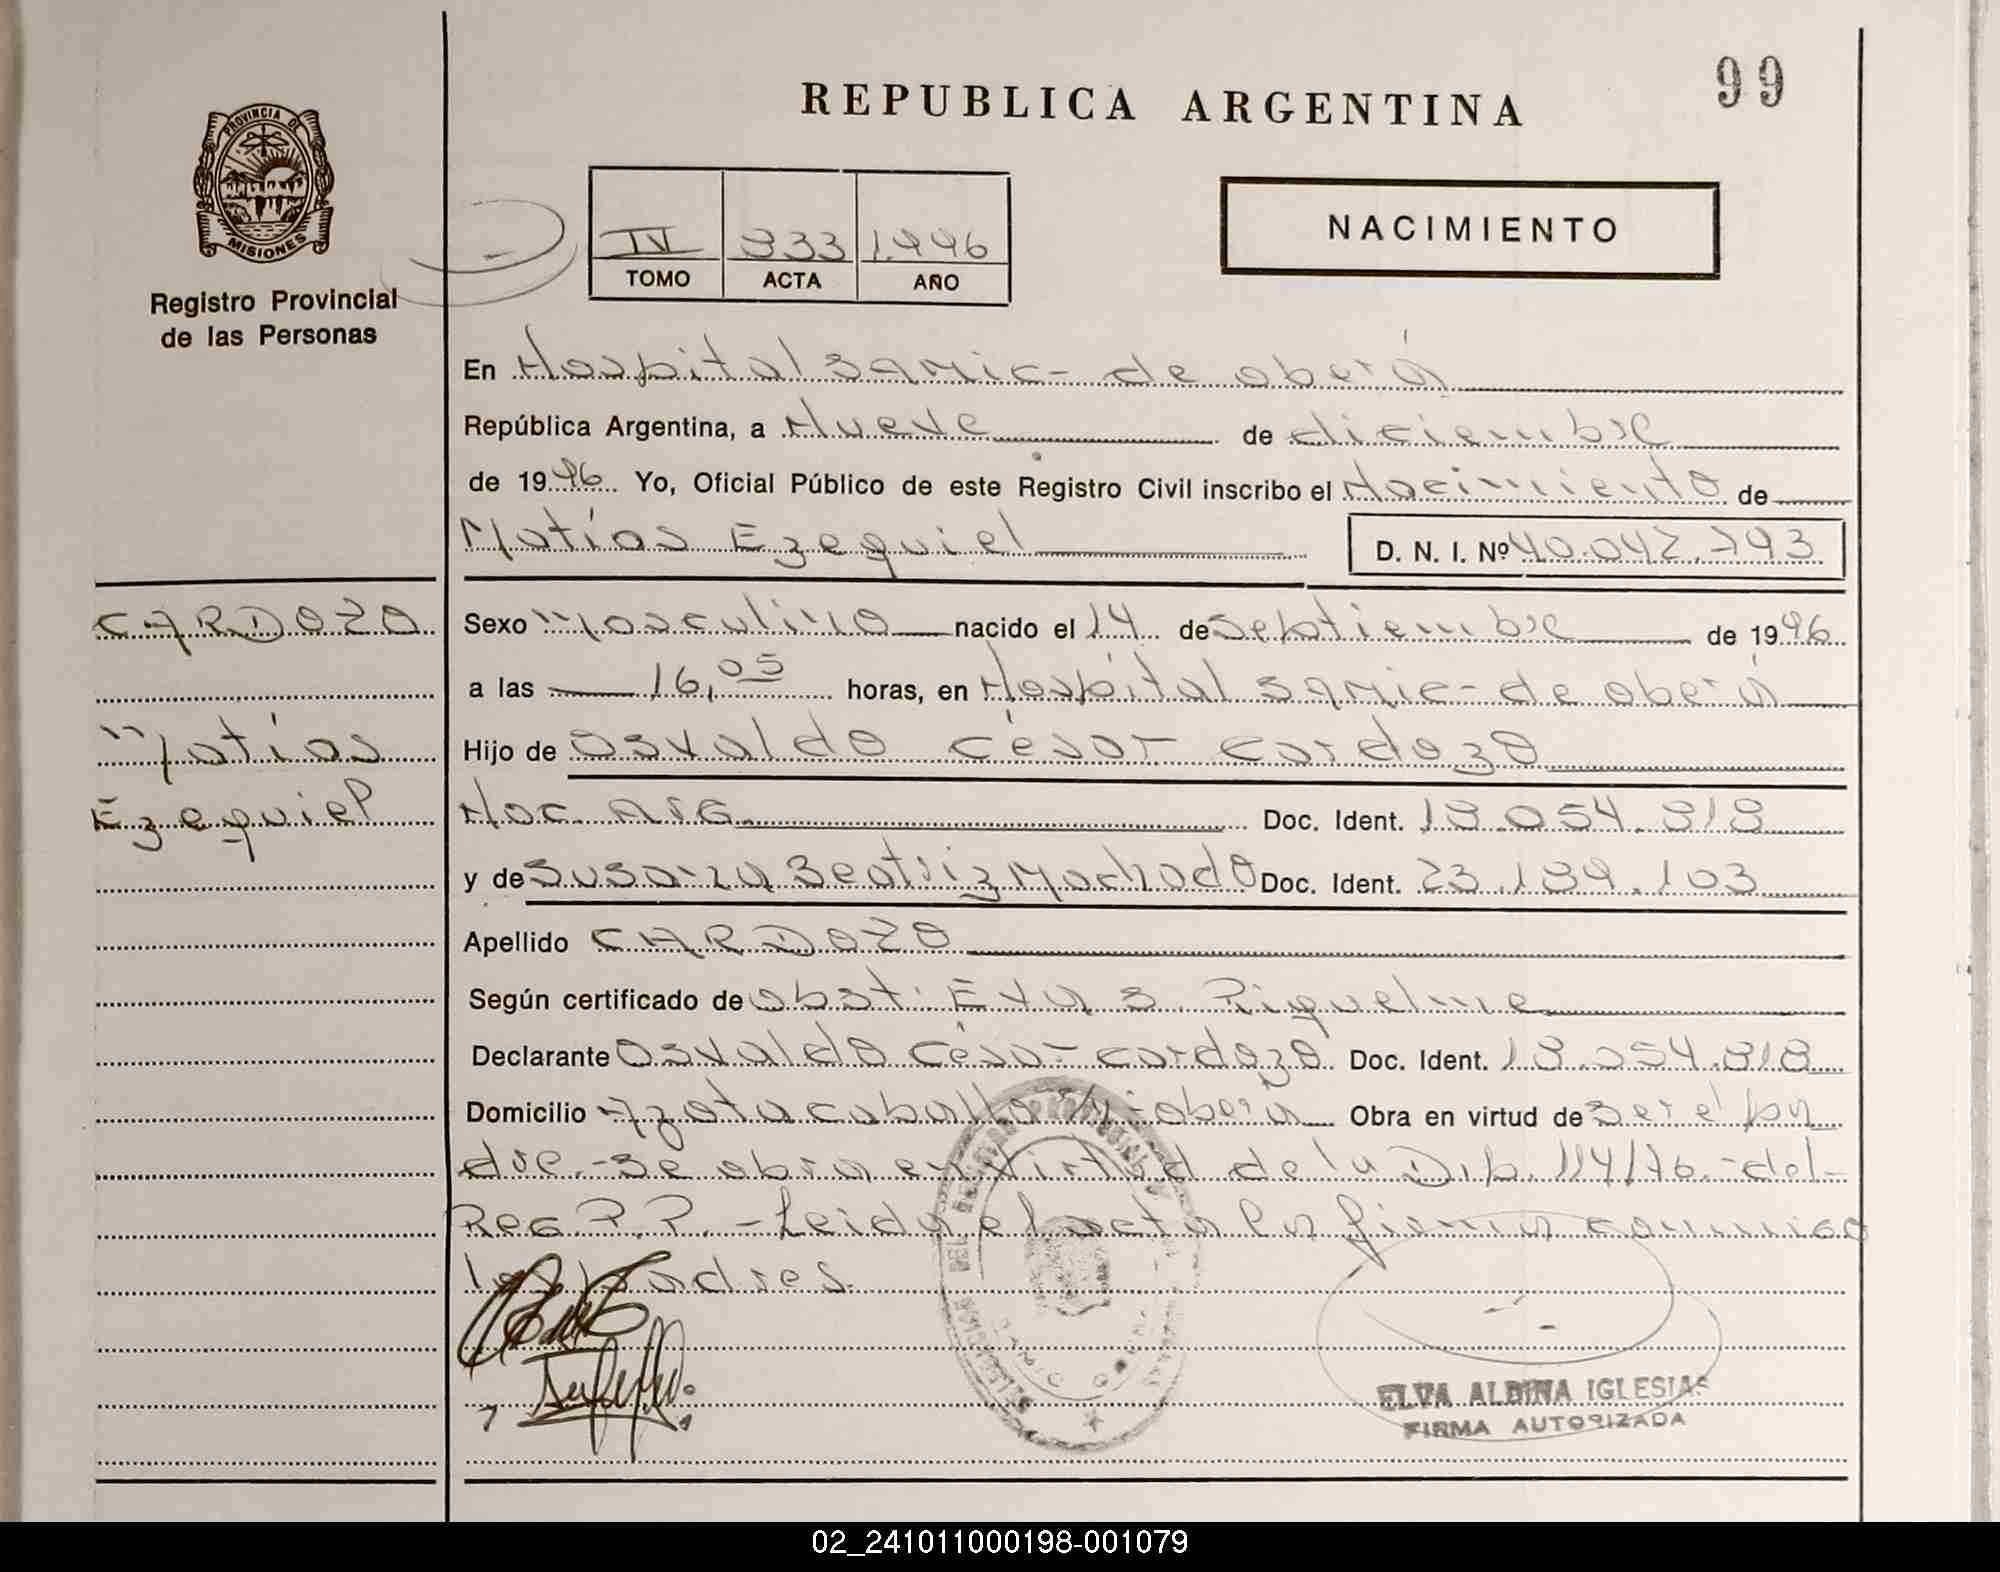 99
REPUBLICA ARGENTINA
PROVINCIA DE
MISIONES
Registro Provincial
de las Personas
NACIMIENTO
IV 933 1.996
TOMO ACTA AÑO
En Hospital Samic - de oberá
República Argentina, a Nueve de diciembre
de 1996 Yo, Oficial Público de este Registro Civil inscribo el Nacimiento de
Matías Ezequiel D. N. I. Nº 40.042.793
CARDOZO
Matías
Ezequiel
Sexo Masculino nacido el 14 de Septiembre de 1996
a las 16,05 horas, en Hospital Samic - de oberá
Hijo de Osvaldo César Cardozo
Nac. Arg. Doc. Ident. 18.054.818
y de Susana Beatriz Machado Doc. Ident. 23.189.103
Apellido CARDOZO
Según certificado de obst. Eva S. Riquelme
Declarante Osvaldo César Cardozo Doc. Ident. 18.054.818
Domicilio Azotacaballo - oberá Obra en virtud de ser el pa
dre.- Se obra en virtud de la Dip. 114/76.- del-
Reg. P. P. - Leida el acta la firman conmigo
los padres.
ELVA ALBINA IGLESIAS
FIRMA AUTORIZADA
02_241011000198-001079